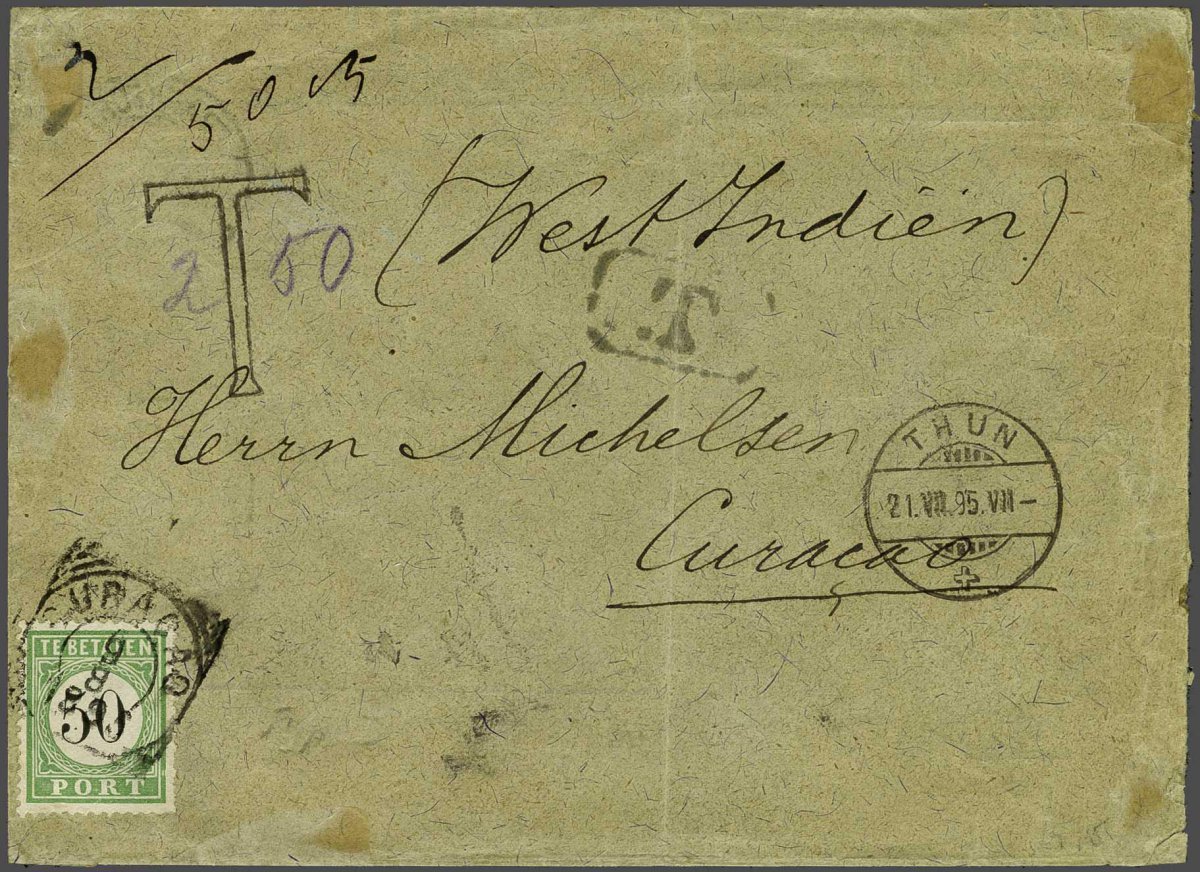 2/50 cts
T
2 50
(West Indiën)
T.
Herrn Michelsen
Curaçao
THUN
21.VII.95.VII-
CURAÇAO
TE BETALEN
50
PORT